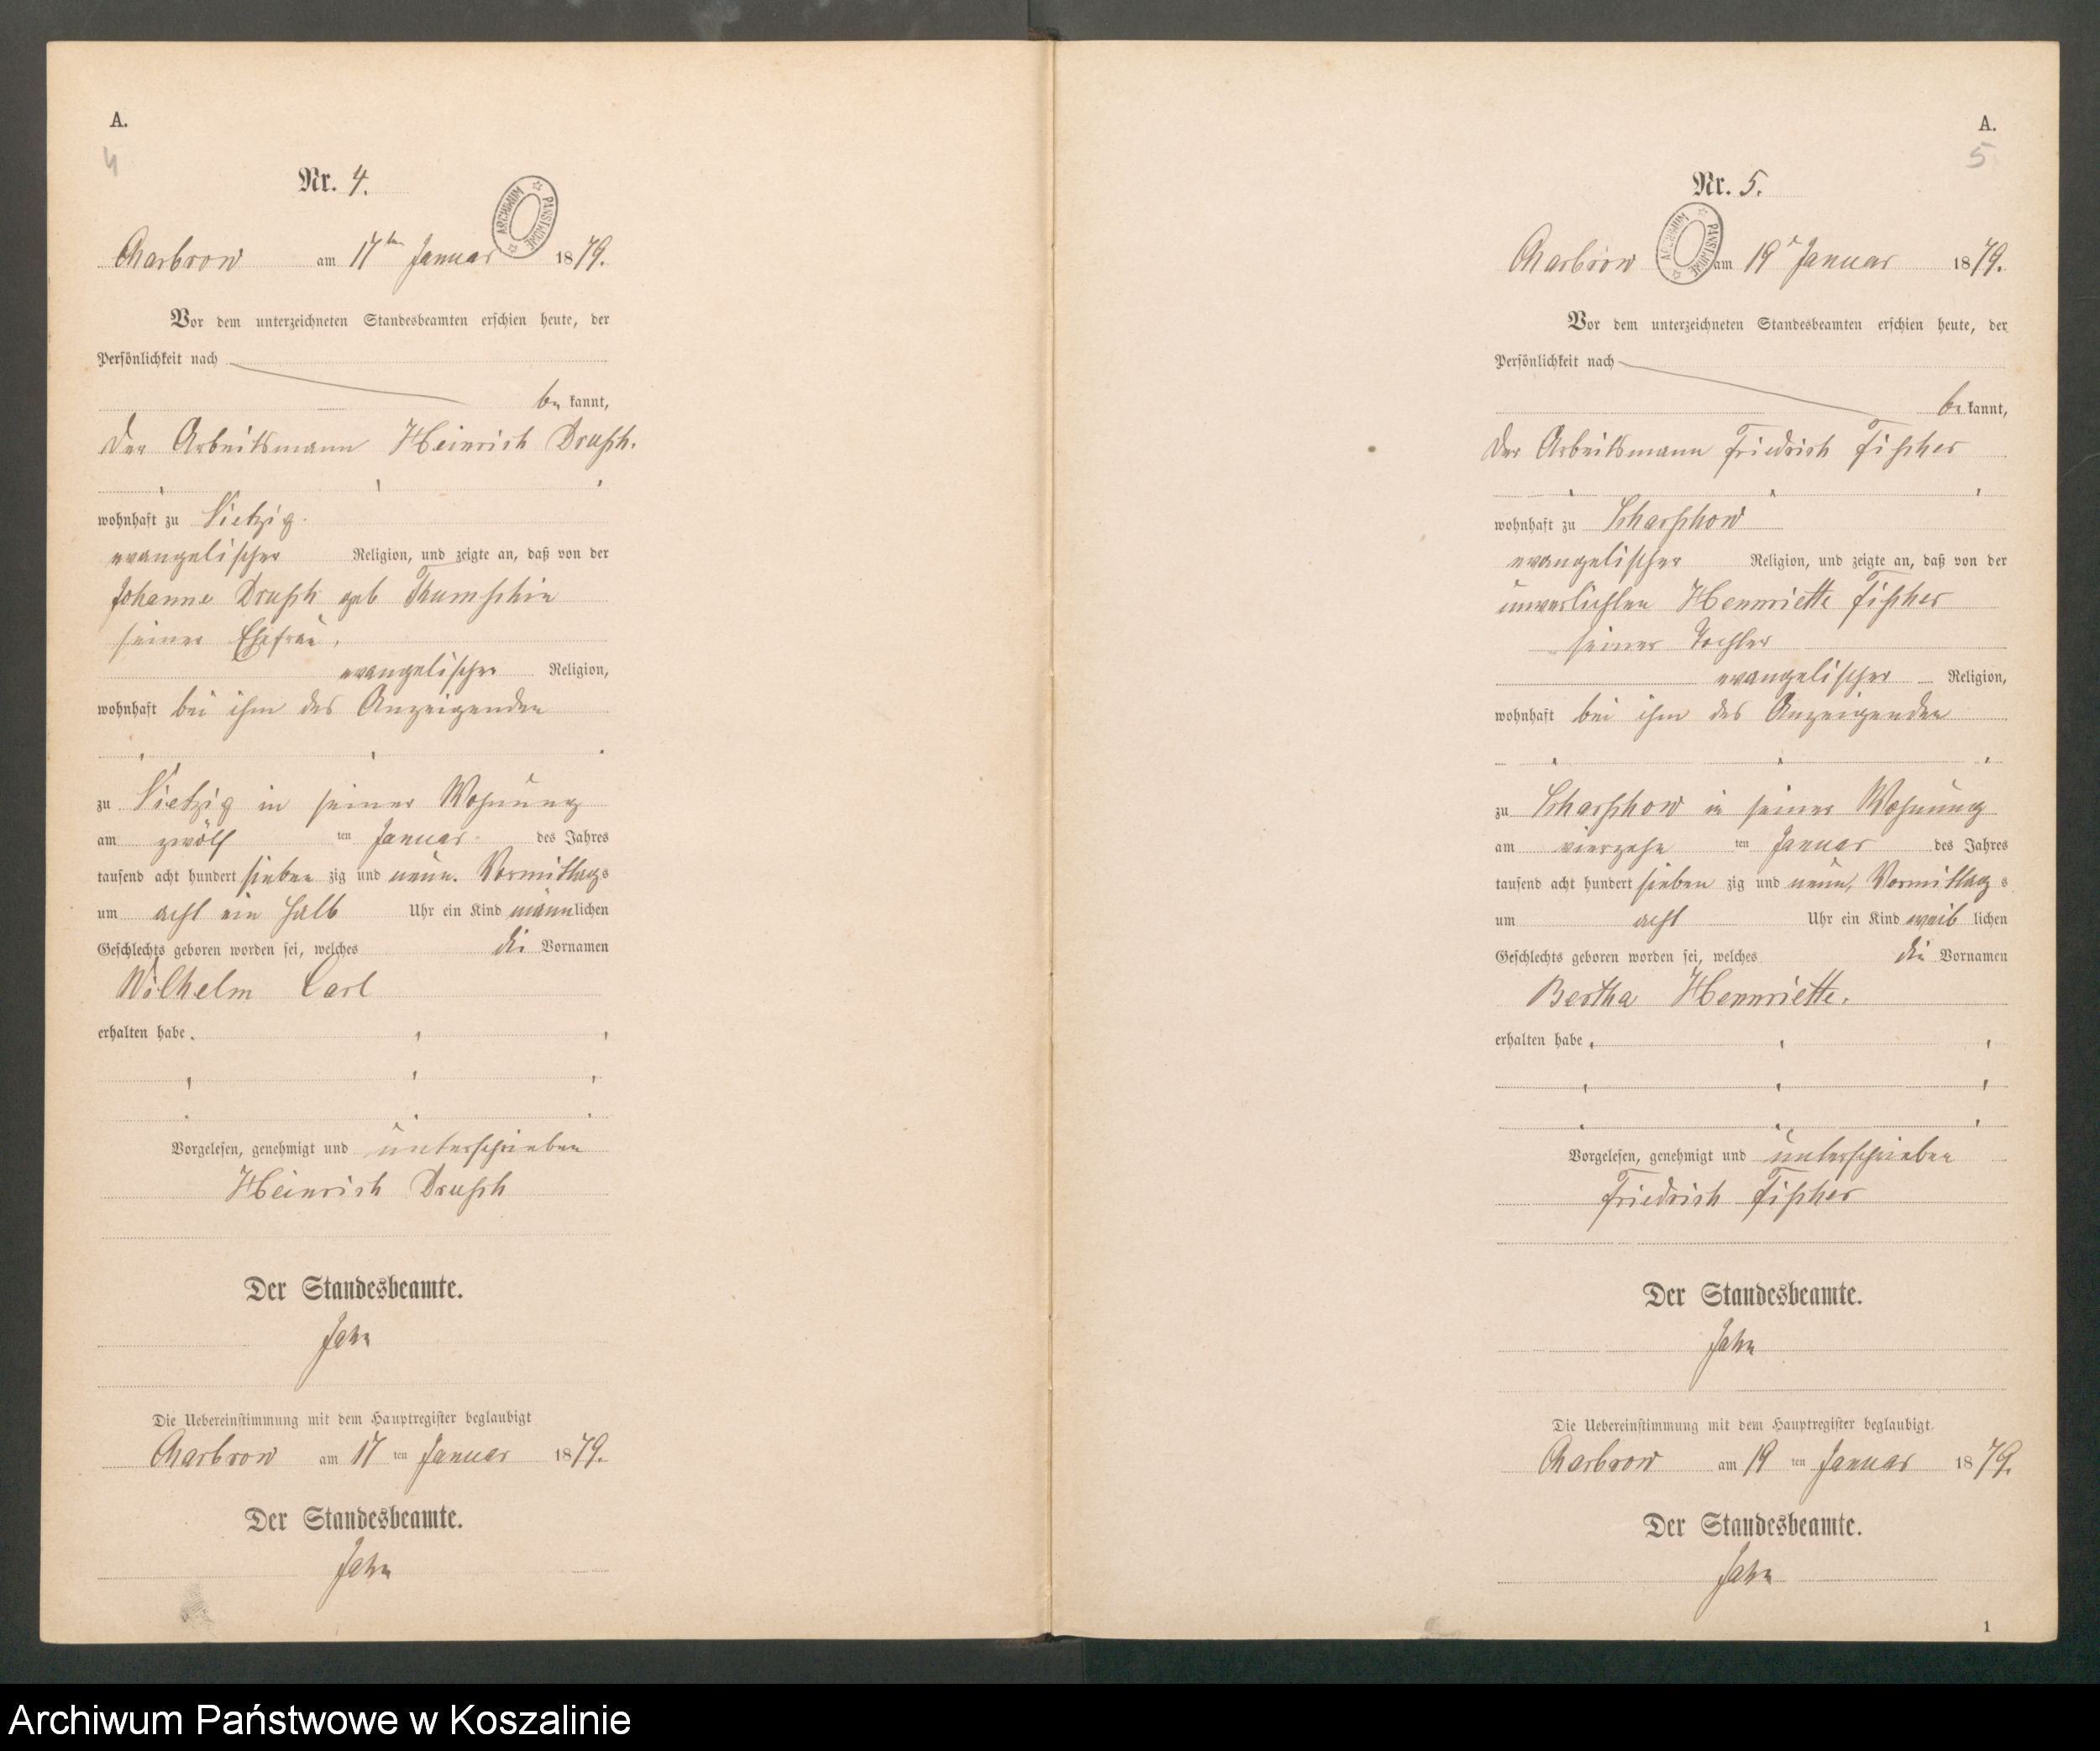 A.
4
Nr. 4.
ARCHIWUM PAŃSTWOWE
Charbrow am 17ten Januar 1879.
Vor dem unterzeichneten Standesbeamten erschien heute, der
Persönlichkeit nach
be kannt,
der Arbeitsmann Heinrich
wohnhaft zu Vietzig
evangelischer Religion, und zeigte an, daß von der
Johanne geb
seiner Ehefrau,
evangelischer Religion,
wohnhaft bei ihm des Anzeigenden
zu Vietzig in seiner Wohnung
am zwölf ten Januar des Jahres
tausend acht hundert sieben zig und neun. Vormittags
um acht ein halb Uhr ein Kind männlichen
Geschlechts geboren worden sei, welches die Vornamen
Wilhelm Carl
erhalten habe.
Vorgelesen, genehmigt und unterschrieben
Heinrich
Der Standesbeamte.
Jahn
Die Uebereinstimmung mit dem Hauptregister beglaubigt
Charbrow am 17 ten Januar 1879.
Der Standesbeamte.
Jahn
A.
5
Nr. 5.
ARCHIWUM PAŃSTWOWE
Charbrow am 19 Januar 1879.
Vor dem unterzeichneten Standesbeamten erschien heute, der
Persönlichkeit nach
be kannt,
der Arbeitsmann Friedrich Fischer
wohnhaft zu Scharschow
evangelischer Religion, und zeigte an, daß von der
unverehlichten Hennriette Fischer
seiner Tochter
evangelischer Religion,
wohnhaft bei ihm des Anzeigenden
zu Scharschow in seiner Wohnung
am vierzehn ten Januar des Jahres
tausend acht hundert sieben zig und neun, Vormittag s
um acht Uhr ein Kind weib lichen
Geschlechts geboren worden sei, welches die Vornamen
Bertha Hennriette.
erhalten habe
Vorgelesen, genehmigt und unterschrieben
Friedrich Fischer
Der Standesbeamte.
Jahn
Die Uebereinstimmung mit dem Hauptregister beglaubigt.
Charbrow am 19 ten Januar 1879.
Der Standesbeamte.
Jahn
1
Archiwum Państwowe w Koszalinie